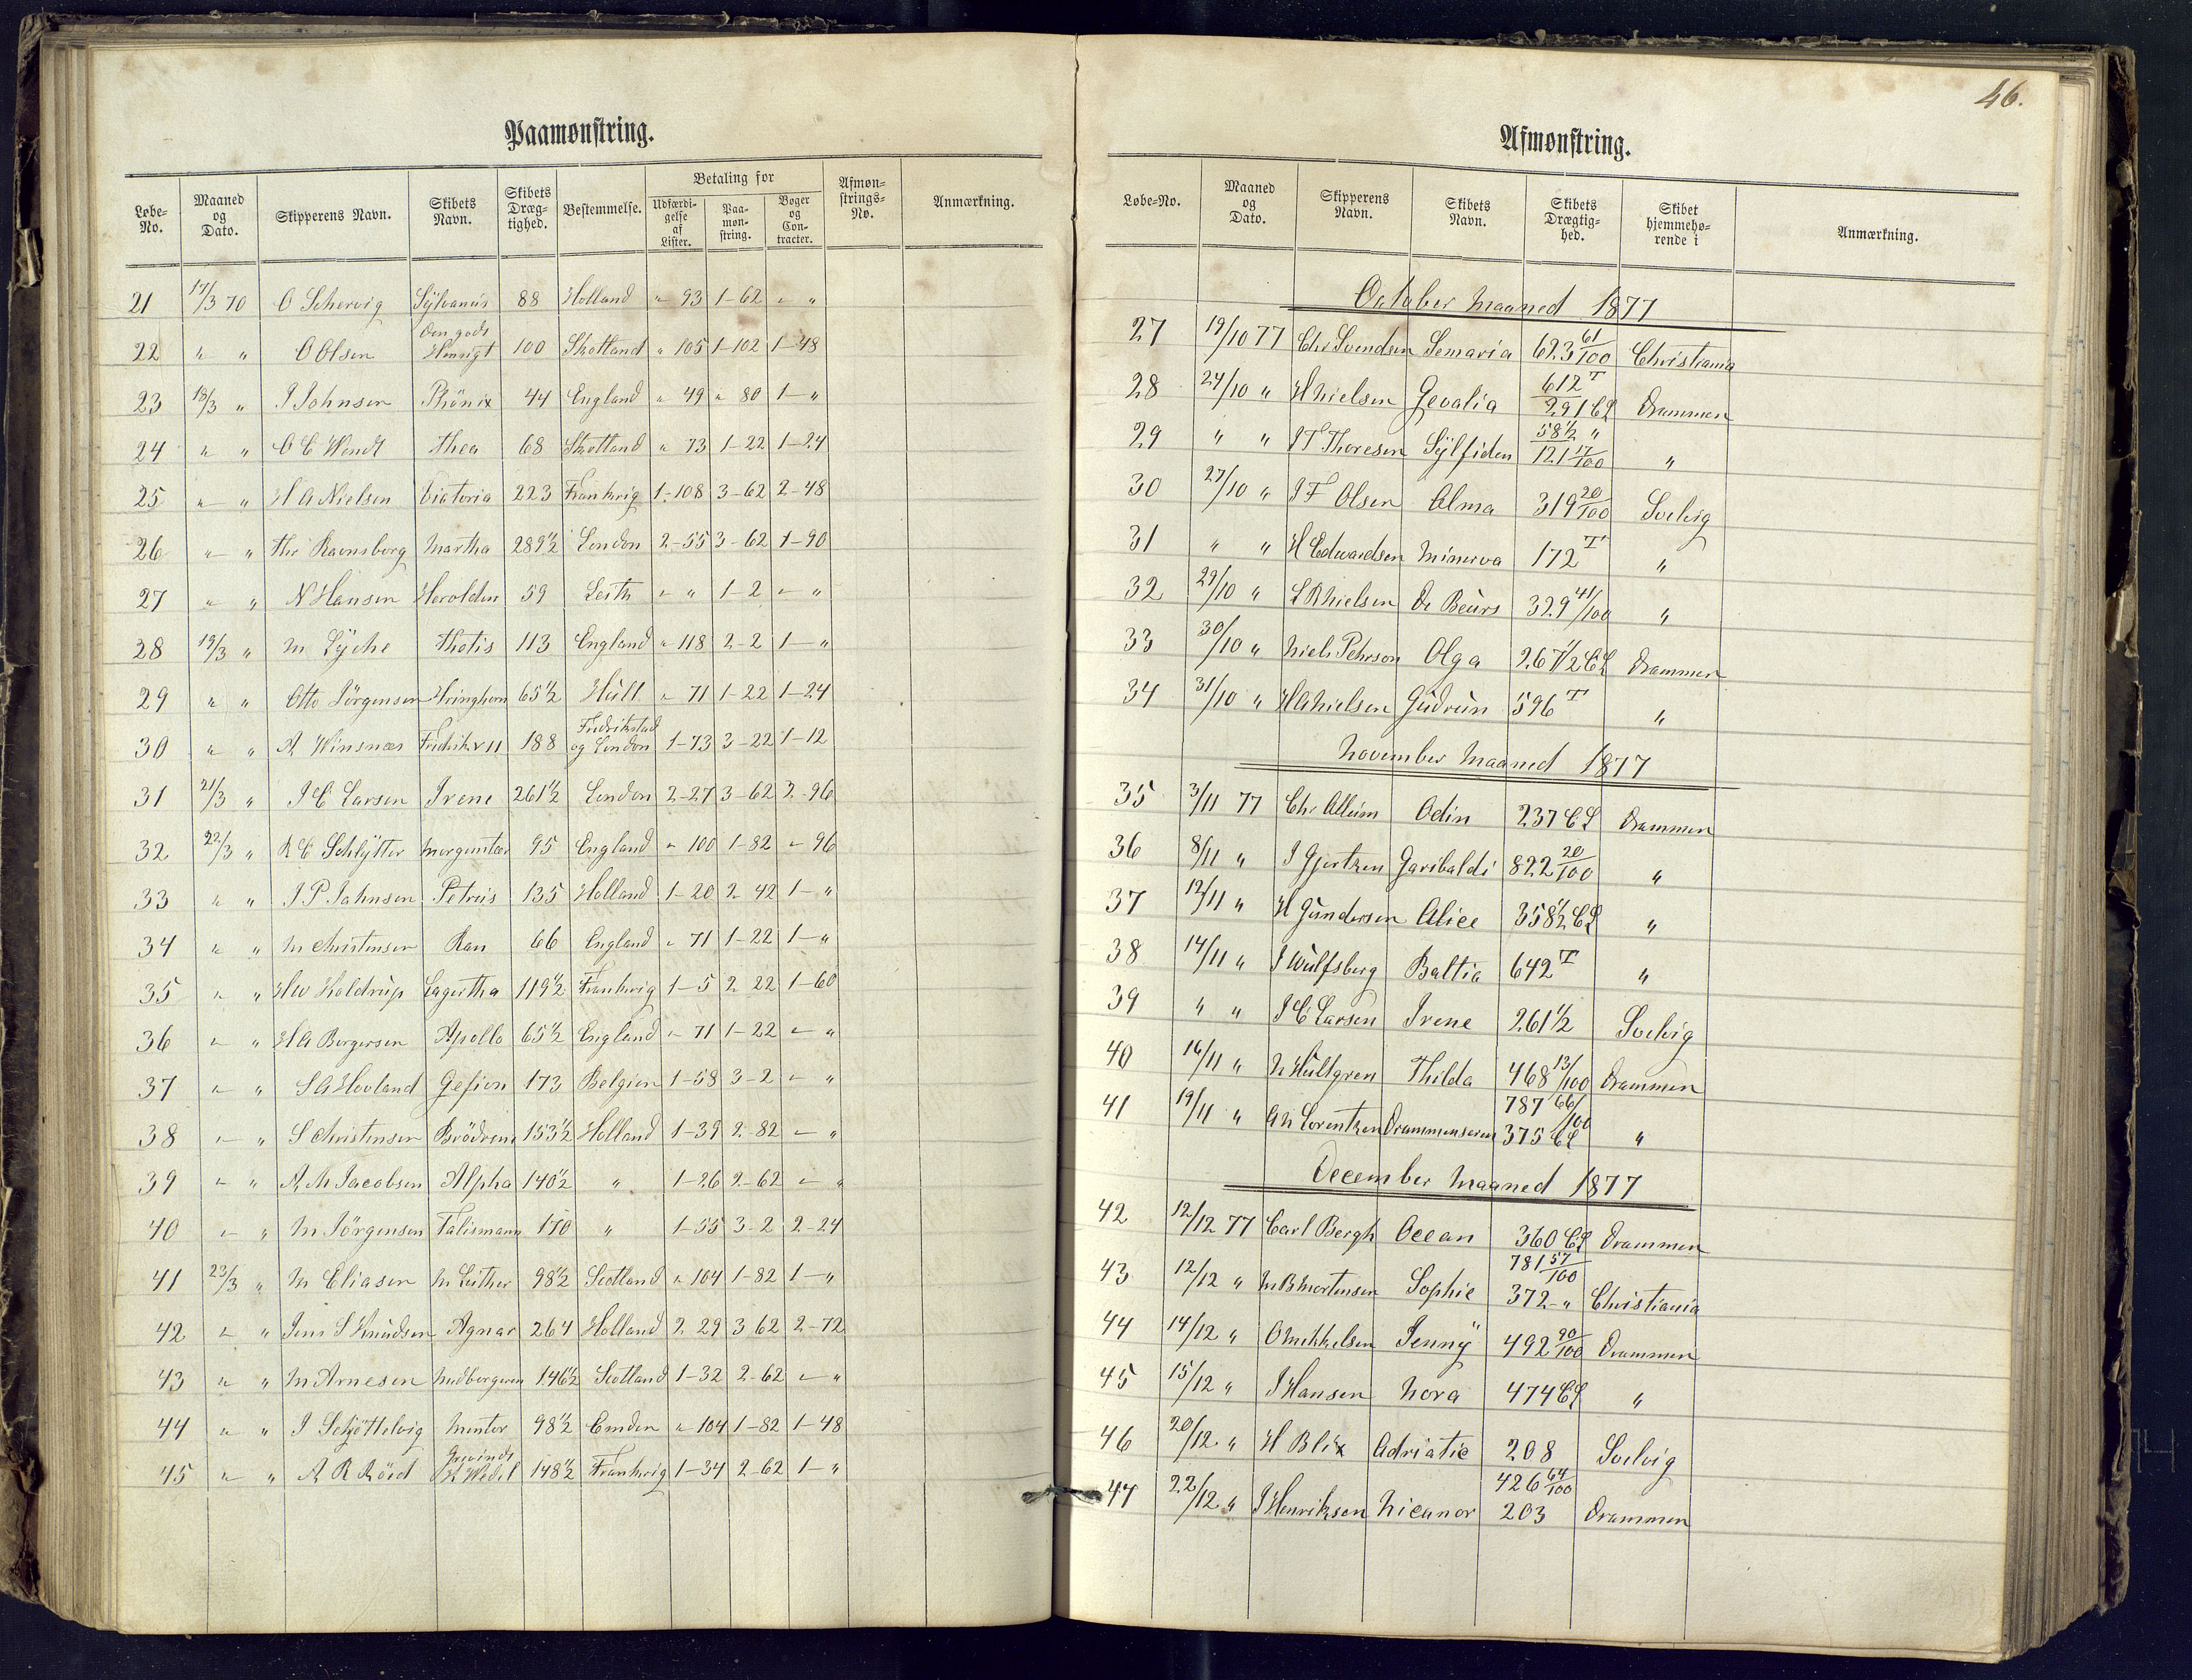 Paamønstring.
Løbe-No. Maaned og Dato. Skipperens Navn. Skibets Navn. Skibets Dræg-tighed. Bestemmelse. Betaling for Udfærdi-gelse af Lister. Paa-møn-string. Bøger og Con-tracter. Afmøn-strings-No. Anmærkning.
21 17/3 70 O Schervig Sylvanus 88 Holland " 93 1-62 " "
Den gode
22 " " O Olsen Hensigt 100 Skotland " 105 1-102 1-48
23 18/3 " I Johnsen Phönix 44 England " 49 " 80 1- "
24 " " O C Wendt Thea 68 Skotland " 73 1-22 1-24
25 " " H A Nielsen Victoria 223 Frankrig 1-108 3-62 2-48
26 " " Chr Ravnsborg Martha 289½ London 2-55 3-62 1-90
27 " " N Hansen Herolden 59 Leith " " 1-2 " "
28 19/3 " M Lyche Thetis 113 England " 118 2-2 1- "
29 " " Otto Jörgensen Hringhorn 65½ Hull " 71 1-22 1-24
Fredrikstad
30 " " A Winsnæs Fredrik VII 188 og London 1-73 3-22 1-12
31 21/3 " J C Larsen Irene 261½ London 2-27 3-62 2-96
32 22/3 " R C Schlytter 95 England " 100 1-82 " 96
33 " " J P Johnsen Petrus 135 Holland 1-20 2 42 1- "
34 " " M Christensen Ran 66 England " 71 1-22 1- "
35 " " H W Holdrup Lagertha 119½ Frankrig 1-5 2 22 1-60
36 " " H A Borgersen Apollo 65½ England " 71 1-22 " "
37 " " S A Hovland Gefion 173 Belgien 1-58 3-2 " "
38 " " S Christensen Brödrene 153½ Holland 1-39 2-82 " "
39 " " A M Jacobsen Alpha 140½ " 1-26 2-62 " "
40 " " M Jörgensen Talismann 170 " 1-55 3-2 2-24
41 23/3 " M Eliasen M Luther 98½ Scotland " 104 1-82 1- "
42 " " Jens S Knudsen Agnar 264 Holland 2 29 3 62 2-72
43 " " M Arnesen Medborgeren 146½ Scotland 1-32 2-62 " "
44 " " I Schjöttelvig Mentor 98½ Emden " 104 1-82 1-48
Grevinde
45 " " A R Röed K Wedel 148½ Frankrig 1-34 2-62 1- "
46.
Afmønstring.
Løbe-No. Maaned og Dato. Skipperens Navn. Skibets Navn. Skibets Drægtig-hed. Skibet hjemmehø-rende i Anmærkning.
October Maaned 1877
27 19/10 77 Chr Svendsen Semaria 623 61/100 Christiania
612 T
28 24/10 " H Nielsen Gevalia 291 CL Drammen
58½ "
29 " " J T Thoresen Sylfiden 121 17/100 "
30 27/10 " J F Olsen Alma 319 20/100 Svelvig
31 " " H Edvardsen Minerva 172 T "
32 29/10 " L R Nielsen De Beurs 329 41/100 "
33 30/10 " Niels Pehrson Olga 267½ CL Drammen
34 31/10 " H A Nielsen Gudrun 596 T "
November Maaned 1877
35 3/11 77 Chr Allum Odin 237 CL Drammen
36 8/11 " J Gjertzen Garibaldi 822 20/100 "
37 12/11 " H Gundersen Alice 358½ CL "
38 14/11 " J Wulfsberg Baltia 642 T "
39 " " J C Larsen Irene 261½ Svelvig
40 16/11 " N Hultgren Thilda 468 13/100 Drammen
787 66/100
41 19/11 " A N Lorentzen Drammenseren 375 CL "
December Maaned 1877
42 12/12 77 Carl Bergh Ocean 360 CL Drammen
781 57/100
43 12/12 " M B Mortensen Sophie 372 - " Christiania
44 14/12 " O Mikkelsen Jenny 492 90/100 Drammen
45 15/12 " J Hansen Nora 474 CL "
46 20/12 " H Blix Adriatic 208 Svelvig
426 64/100
47 22/12 " J Henriksen Nicanor 203 Drammen